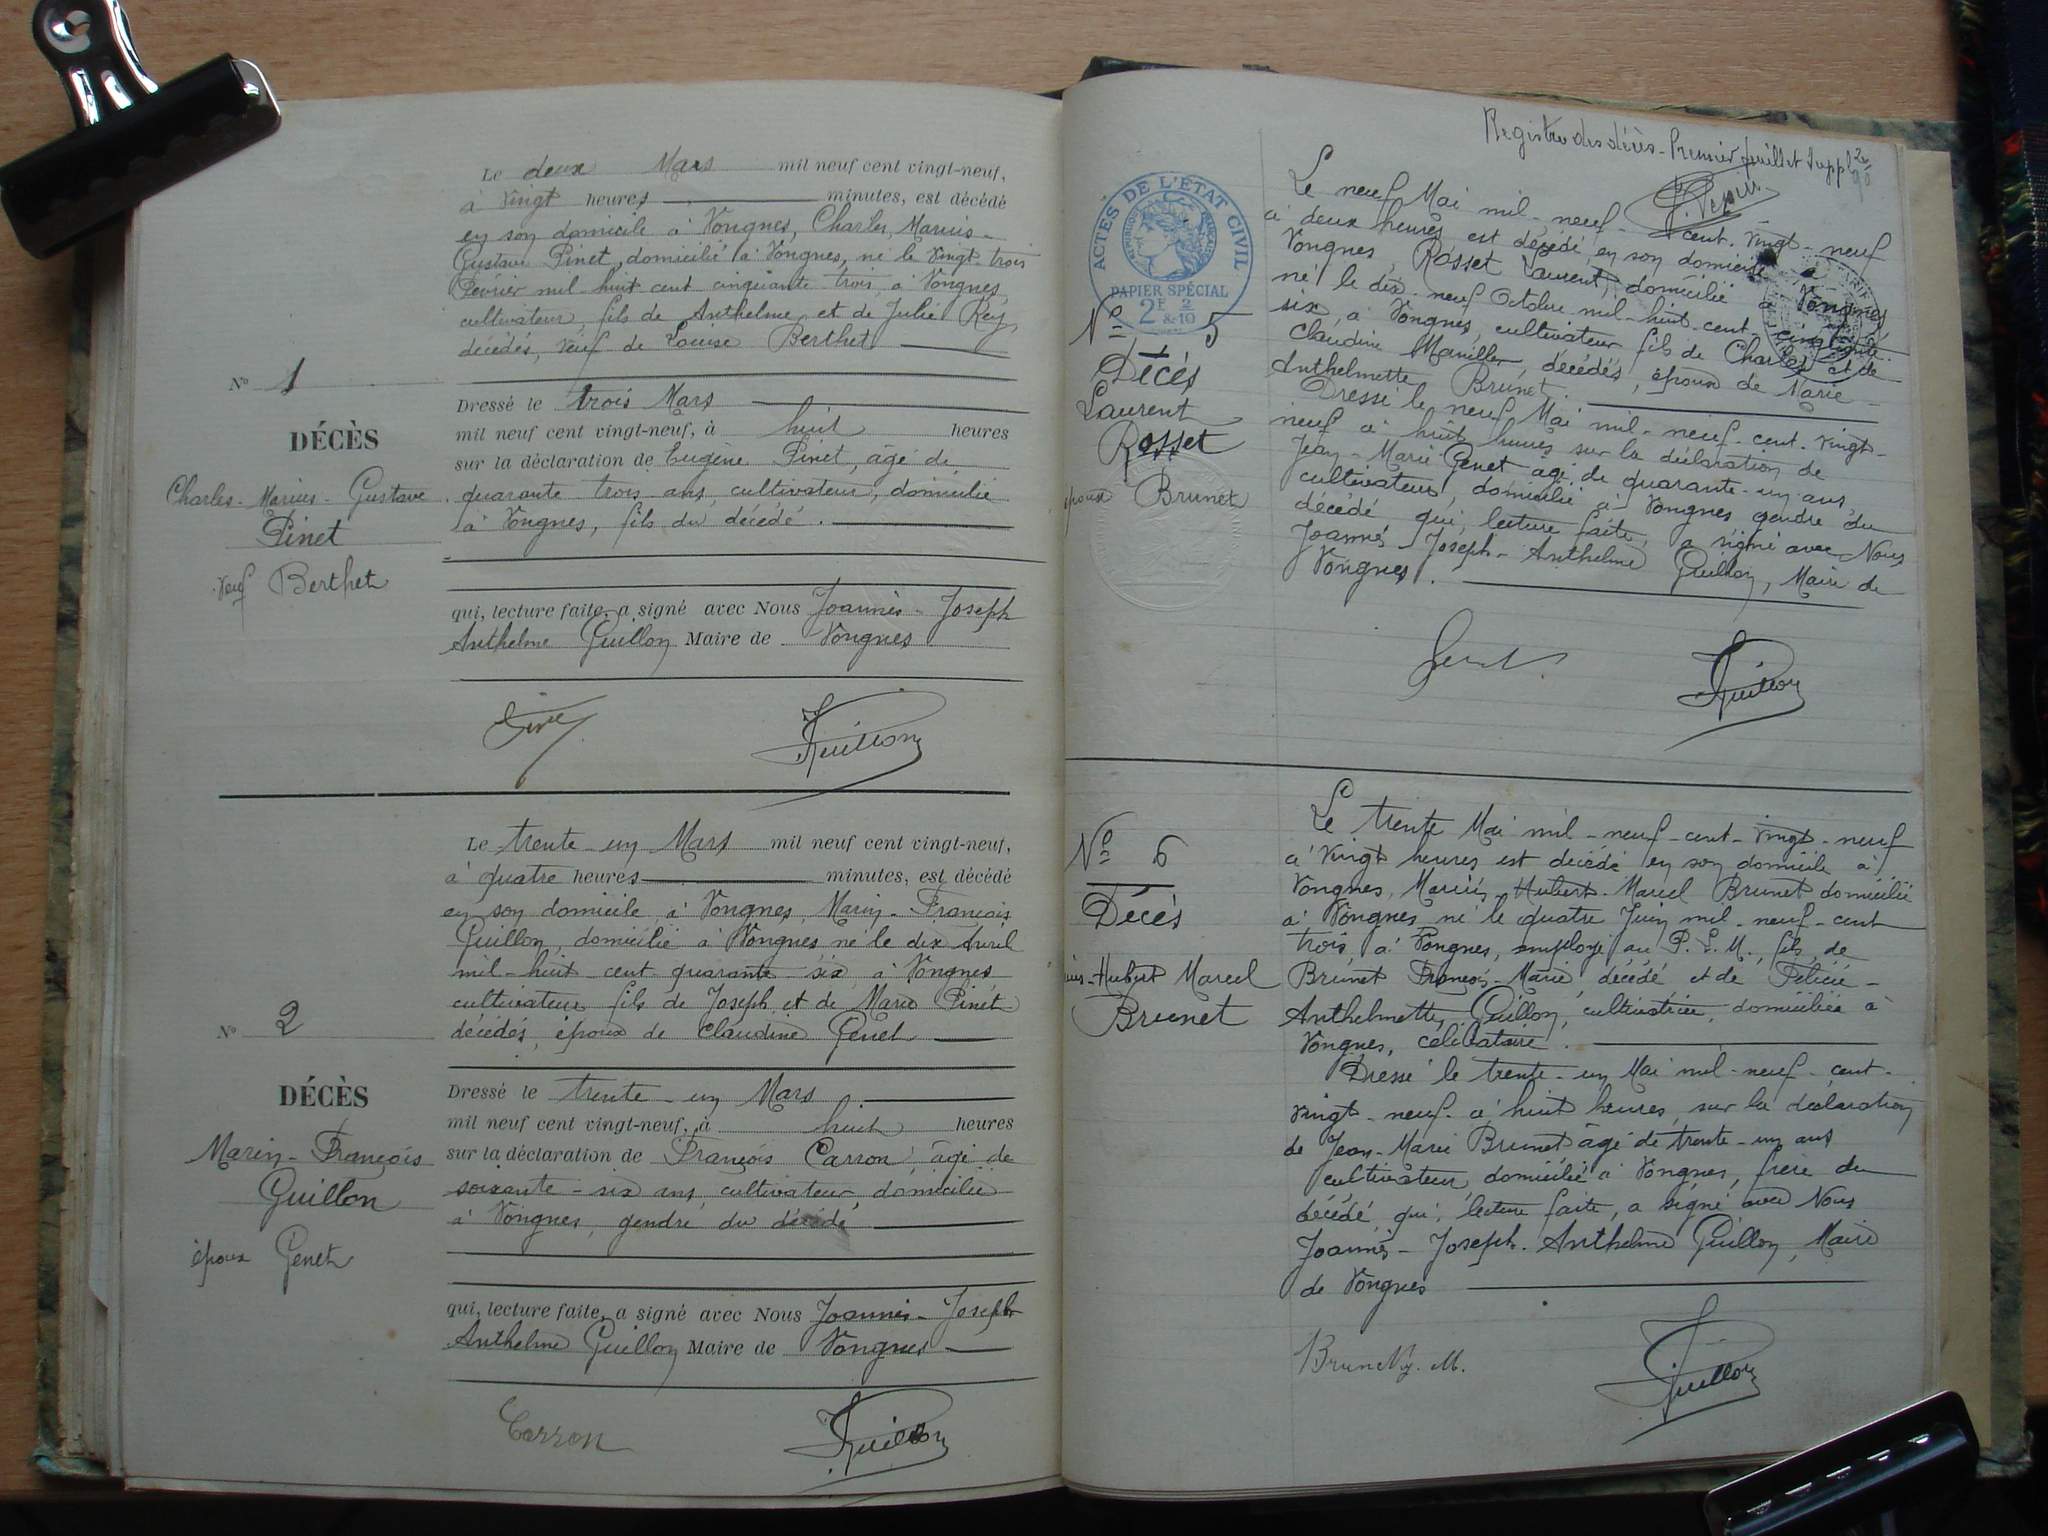 Le deux Mars mil neuf cent vingt-neuf,
à vingt heures minutes, est décédé
en son domicile à Vongnes, Charles, Marius-
Gustave Pinet, domicilié à Vongnes, né le vingt-trois
Février mil-huit cent cinquante trois, à Vongnes,
cultivateur, fils de Anthelme et de Julie Rey,
décédés, veuf de Louise Berthet
Nº 1
DÉCÈS
Charles-Marius-Gustave
Pinet
veuf Berthet
Dressé le trois Mars
mil neuf cent vingt-neuf, à huit heures
sur la déclaration de Eugène Pinet, âgé de
quarante trois ans, cultivateur, domicilié
à Vongnes, fils du décédé.
qui, lecture faite, a signé avec Nous Joannès-Joseph
Anthelme Guillon Maire de Vongnes
Guillon
Le trente-un Mars mil neuf cent vingt-neuf,
à quatre heures minutes, est décédé
en son domicile, à Vongnes, Marin-François
Guillon, domicilié à Vongnes né le dix Avril
mil-huit-cent quarante-six, à Vongnes
cultivateur, fils de Joseph et de Marie Pinet
décédés, époux de Claudine Genet
Nº 2
DÉCÈS
Marin-François
Guillon
époux Genet
Dressé le trente-un Mars
mil neuf cent vingt-neuf, à huit heures
sur la déclaration de François Carron, âgé de
soixante-six ans, cultivateur, domicilié
à Vongnes, gendre du décédé
qui, lecture faite, a signé avec Nous Joannès-Joseph
Anthelme Guillon Maire de Vongnes
Carron Guillon
Registre des décès-Premier feuillet suppl
ACTES DE L'ÉTAT CIVIL
RÉPUBLIQUE FRANÇAISE
PAPIER SPÉCIAL
2F 2/&10
Nº 5
Décès
Laurent
Rosset
époux Brunet
Le neuf Mai mil-neuf-cent-vingt-neuf
à deux heures, est décédé, en son domicile à
Vongnes, Rosset Laurent, domicilié à Vongnes,
né le dix-neuf Octobre mil-huit-cent-cinquante-
six, à Vongnes, cultivateur fils de Charles et de
Claudine Maniller, décédés, époux de Marie-
Anthelmette Brunet.
Dressé le neuf Mai mil-neuf-cent-vingt-
neuf à huit heures sur la déclaration de
Jean-Marie Genet âgé de quarante-un ans
cultivateur, domicilié à Vongnes gendre du
décédé qui, lecture faite, a signé avec Nous
Joannès-Joseph-Anthelme Guillon, Maire de
Vongnes.
Genet Guillon
Nº 6
Décès
Hubert Marcel
Brunet
Le trente Mai mil-neuf-cent-vingt-neuf
à vingt heures est décédé en son domicile à
Vongnes, Marius-Hubert-Marcel Brunet domicilié
à Vongnes né le quatre Juin mil-neuf-cent
trois, à Vongnes, employé au P.L.M., fils de
Brunet François-Marie, décédé et de Félicie-
Anthelmette, Guillon, cultivatrice, domiciliée à
Vongnes, célibataire.
Dressé le trente-un Mai mil-neuf-cent-
vingt-neuf à huit heures, sur la déclaration
de Jean-Marie Brunet âgé de trente-un ans
cultivateur domicilié à Vongnes, frère du
décédé, qui, lecture faite, a signé avec Nous
Joannès-Joseph-Anthelme Guillon, Maire
de Vongnes
Brunet J. M. Guillon